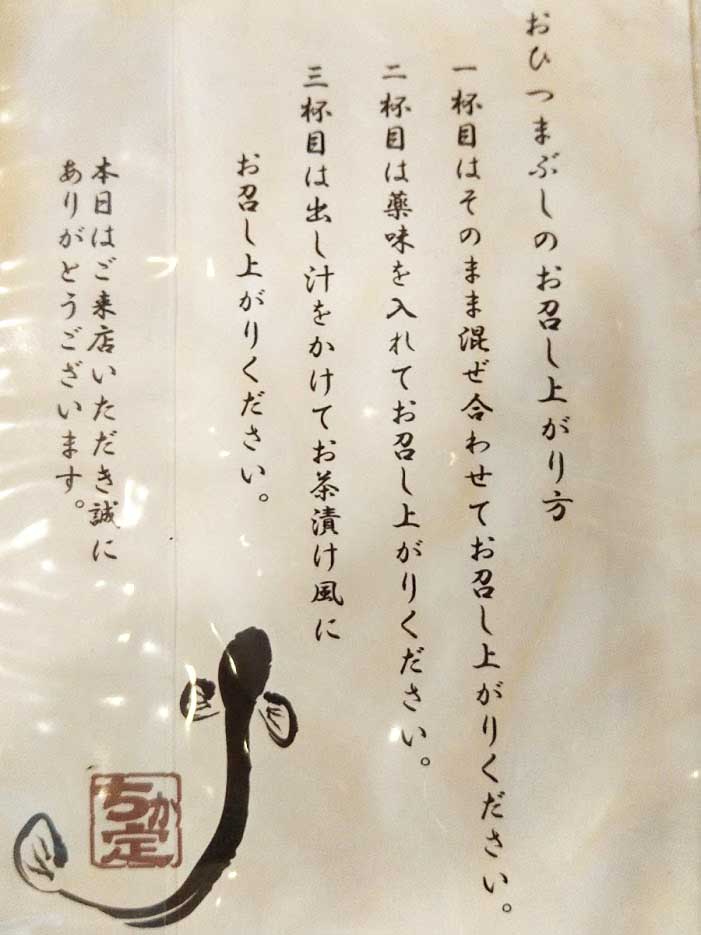 おひつまぶしのお召し上がり方
一杯目はそのまま混ぜ合わせてお召し上がりください。
二杯目は薬味を入れてお召し上がりください。
三杯目は出し汁をかけてお茶漬け風に
お召し上がりください。
本日はご来店いただき誠に
ありがとうございます。
ちか定